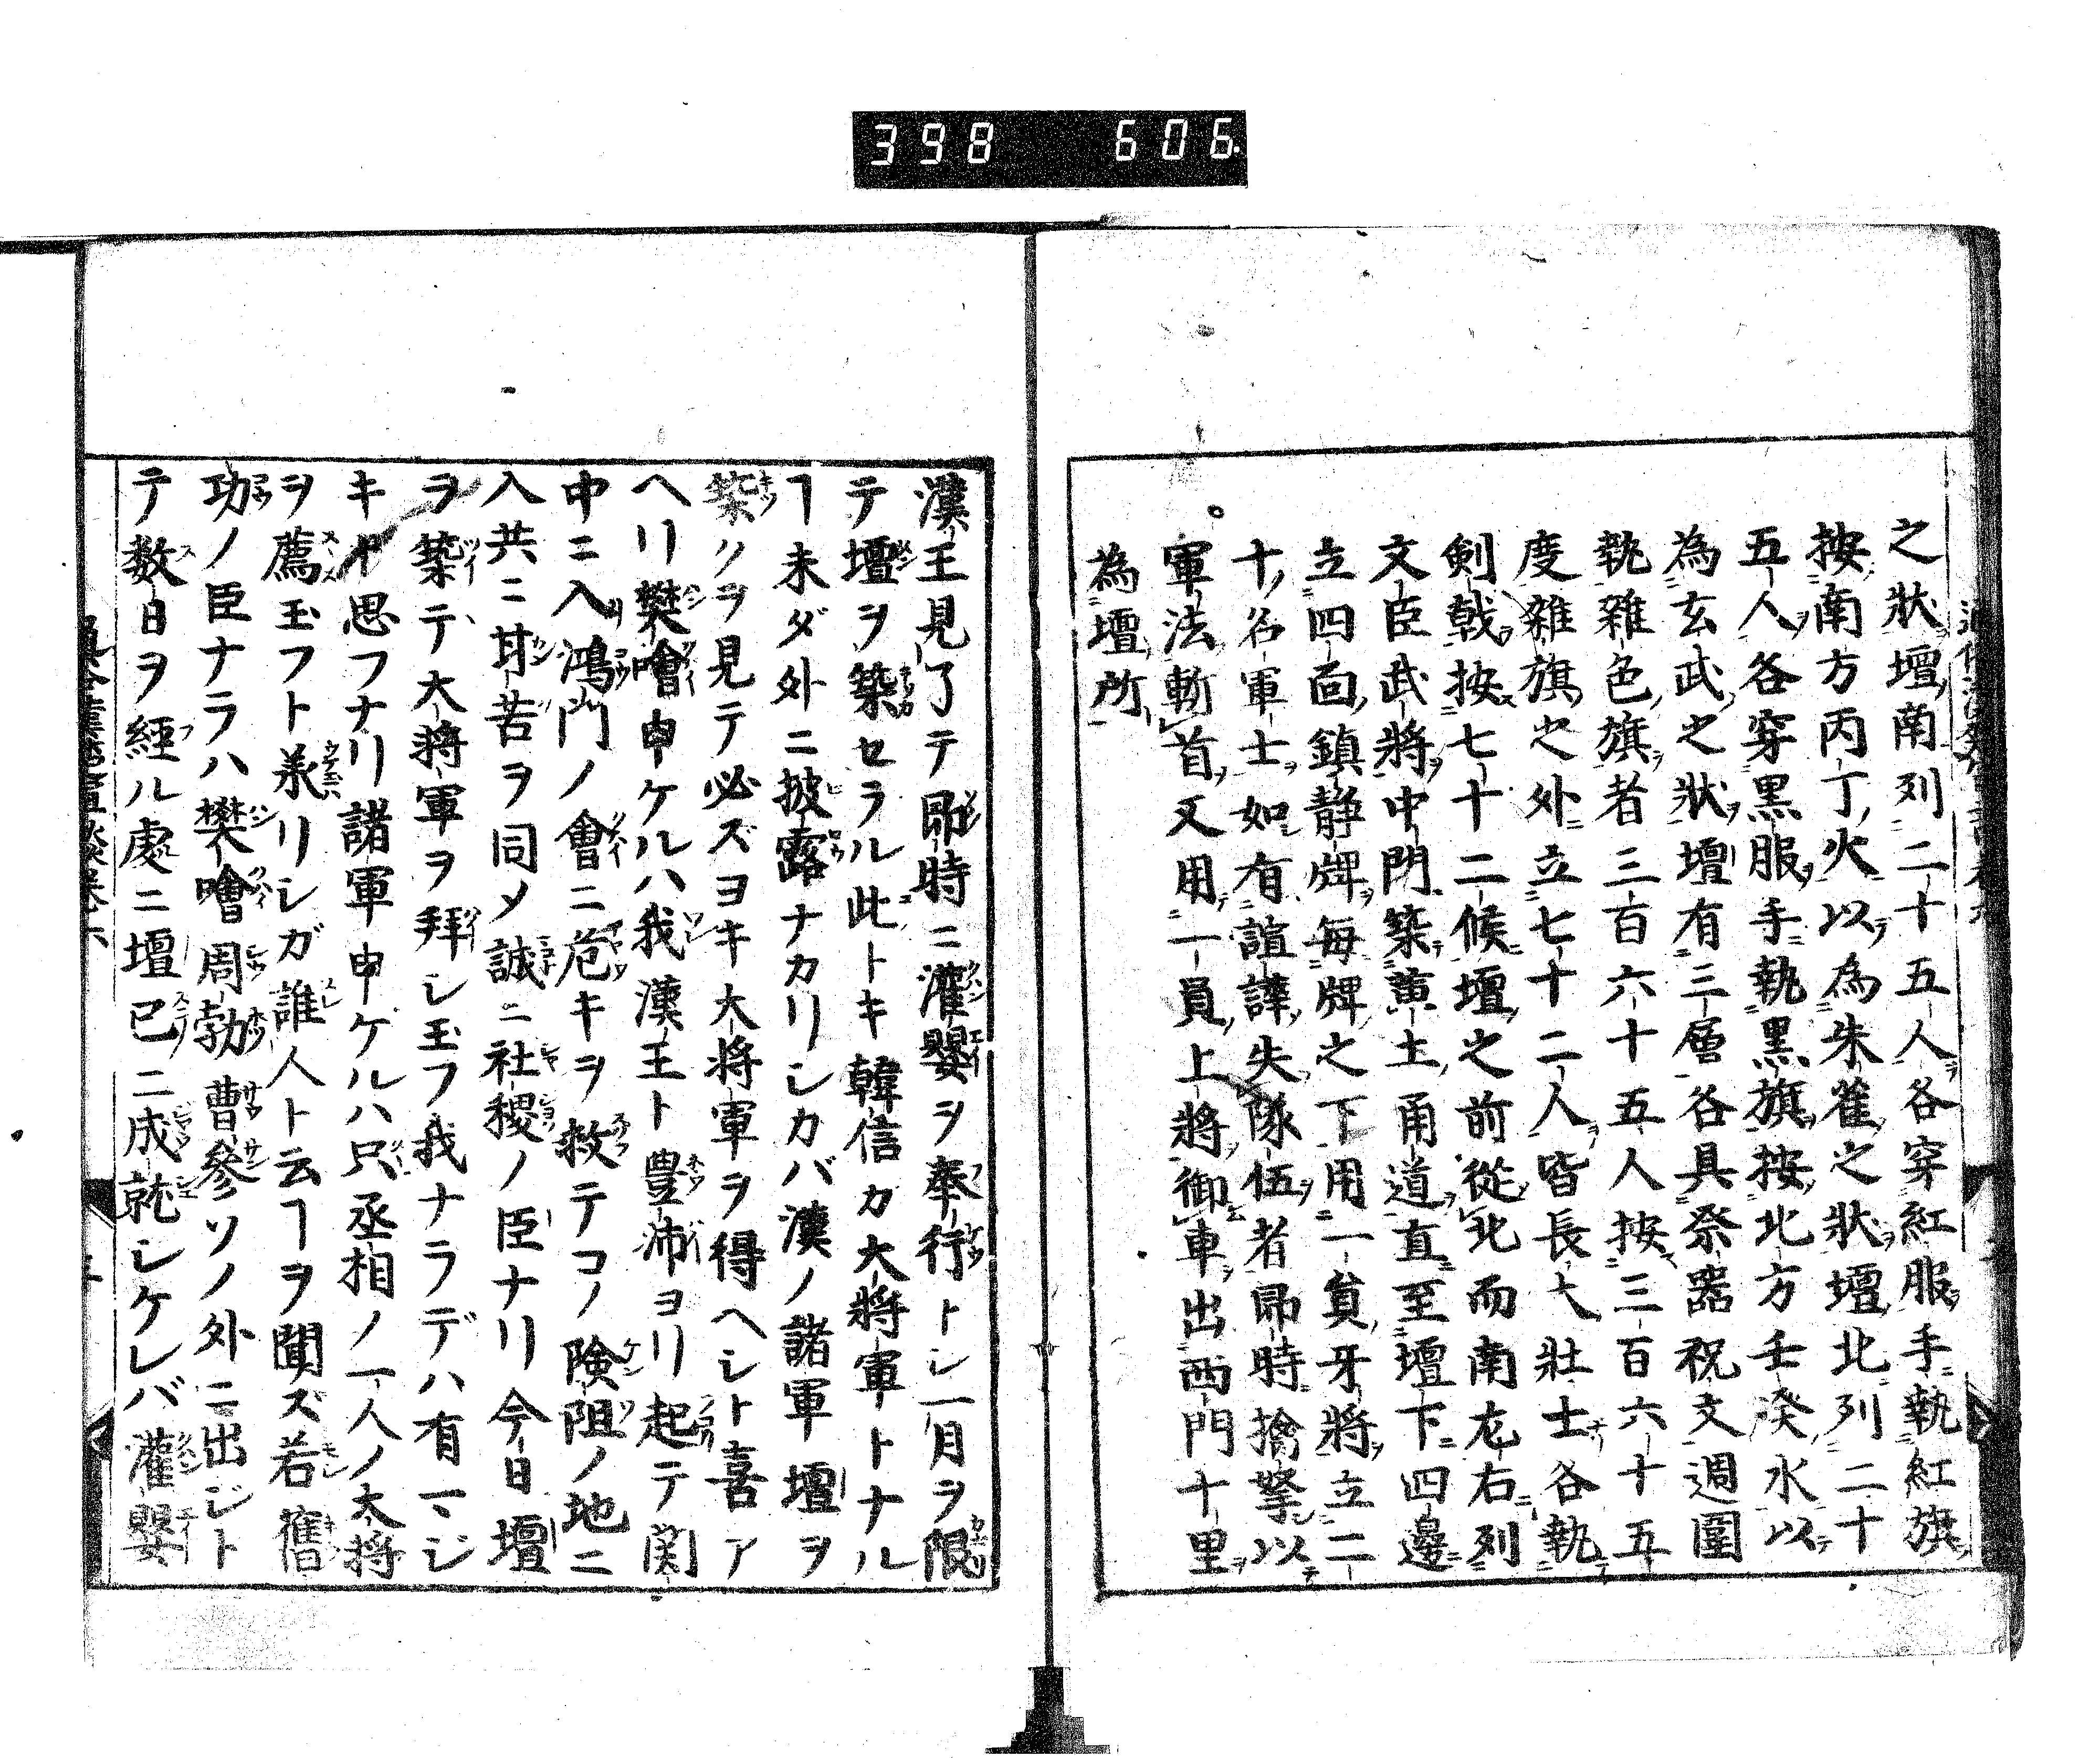 398 606
之狀壇南列二十五人各穿紅服手執紅旗
按南方丙丁火以為朱雀之狀壇北列二十
五人各穿黒服手執黒旗按北方壬癸水以
為玄武之狀壇有三層各具祭器祝文週圍
執雜色旗者三百六十五人按三百六十五
度雜旗之外立七十二人皆長大壯士各執
劍戟按七十二候壇之前從北而南左右列
文臣武將中門築黄土甬道直至壇下四邊
立四面鎮静牌每牌之下用一員牙將立二
十名軍士如有諠譁失隊伍者即時擒拏以
軍法斬首又用一員上將御車出西門十里
為壇所
漢王見了テ即時ニ灌嬰ヲ奉行トシ一月ヲ限
テ壇ヲ築セラル此トキ韓信カ大將軍トナル
ヿ未ダ外ニ披露ナカリシカバ漢ノ諸軍壇ヲ
築クヲ見テ必ズヨキ大将軍ヲ得ヘシト喜ア
ヘリ樊噲申ケルハ我漢王ト豊沛ヨリ起テ関
中ニ入鴻門ノ會ニ危キヲ救テコノ険阻ノ地ニ
入共ニ甘苦ヲ同メ誠ニ社稷ノ臣ナリ今日壇
ヲ築テ大將軍ヲ拜シ玉フ我ナラデハ有マジ
キト思フナリ諸軍申ケルハ只丞相ノ一人ノ大将
ヲ薦玉フト承リシガ誰人ト云ヿヲ聞ズ若舊
功ノ臣ナラハ樊噲周勃曹參ソノ外ニ出ジト
テ数日ヲ經ル處ニ壇已ニ成就シケレバ灌嬰